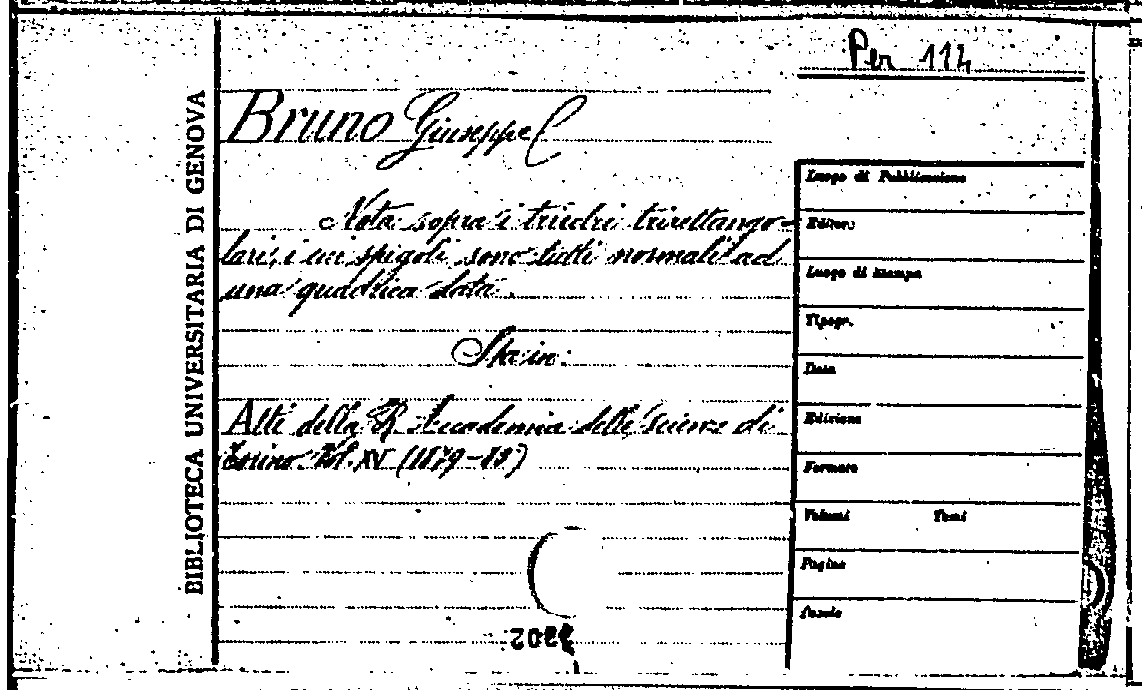 Per 114
BIBLIOTECA UNIVERSITARIA DI GENOVA
Bruno Giuseppe
Nota sopra i triedri trirettango-
lari, i cui spigoli sono tutti normali ad
una quadrica data.
Sta in:
Atti della R. Accademia delle Scienze di
Torino. Vol. XV (1879-80)
Luogo di Pubblicazione
Editore
Luogo di stampa
Tipogr.
Data
Edizione
Formato
Volumi Tomi
Pagine